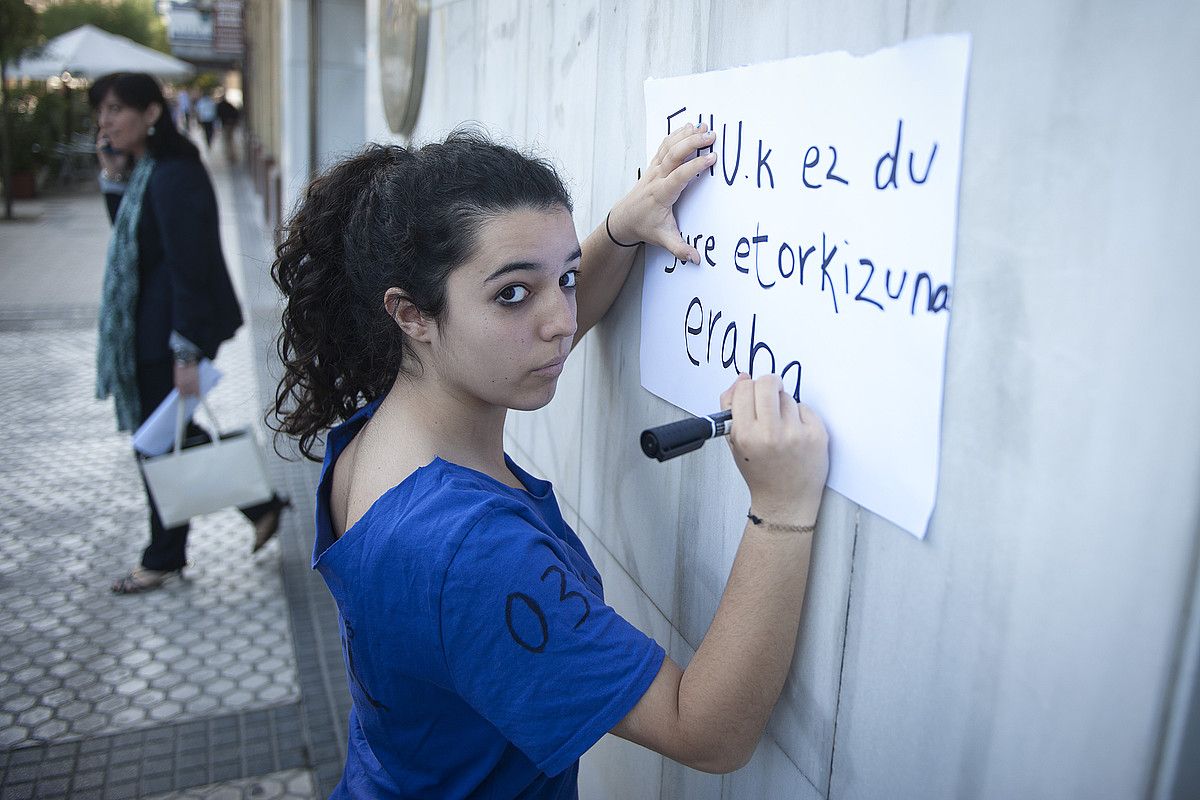 EHU.k ez du
gure etorkizuna
eraba
03